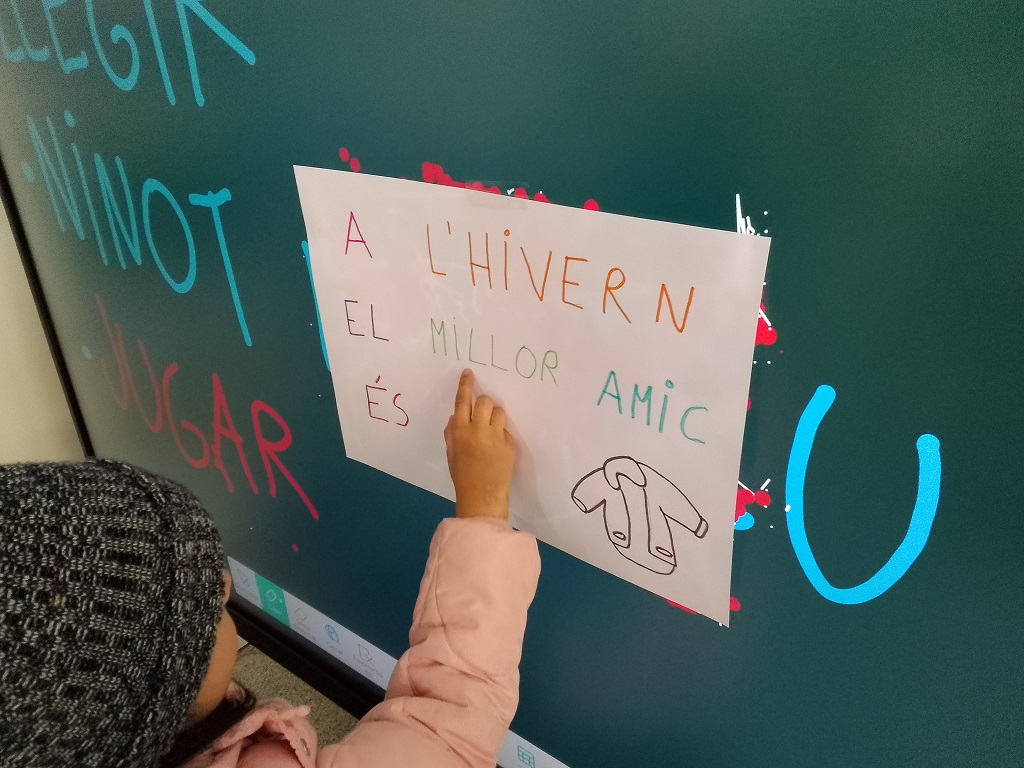 LLEGIR
·NINOT
·JUGAR
A L'HiVERN
EL MiLLOR AMiC
ÉS
U